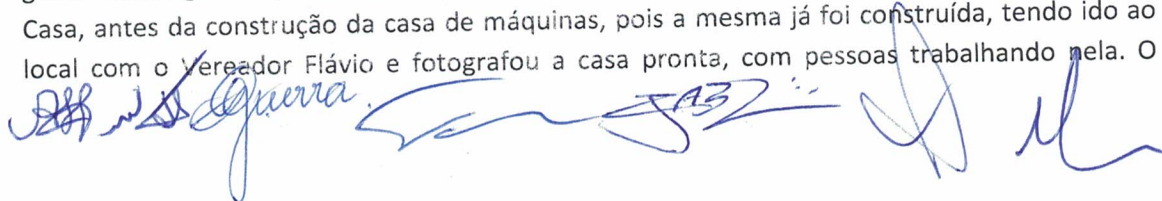 Casa, antes da construção da casa de máquinas, pois a mesma já foi construída, tendo ido ao
local com o Vereador Flávio e fotografou a casa pronta, com pessoas trabalhando nela. O
Guerra